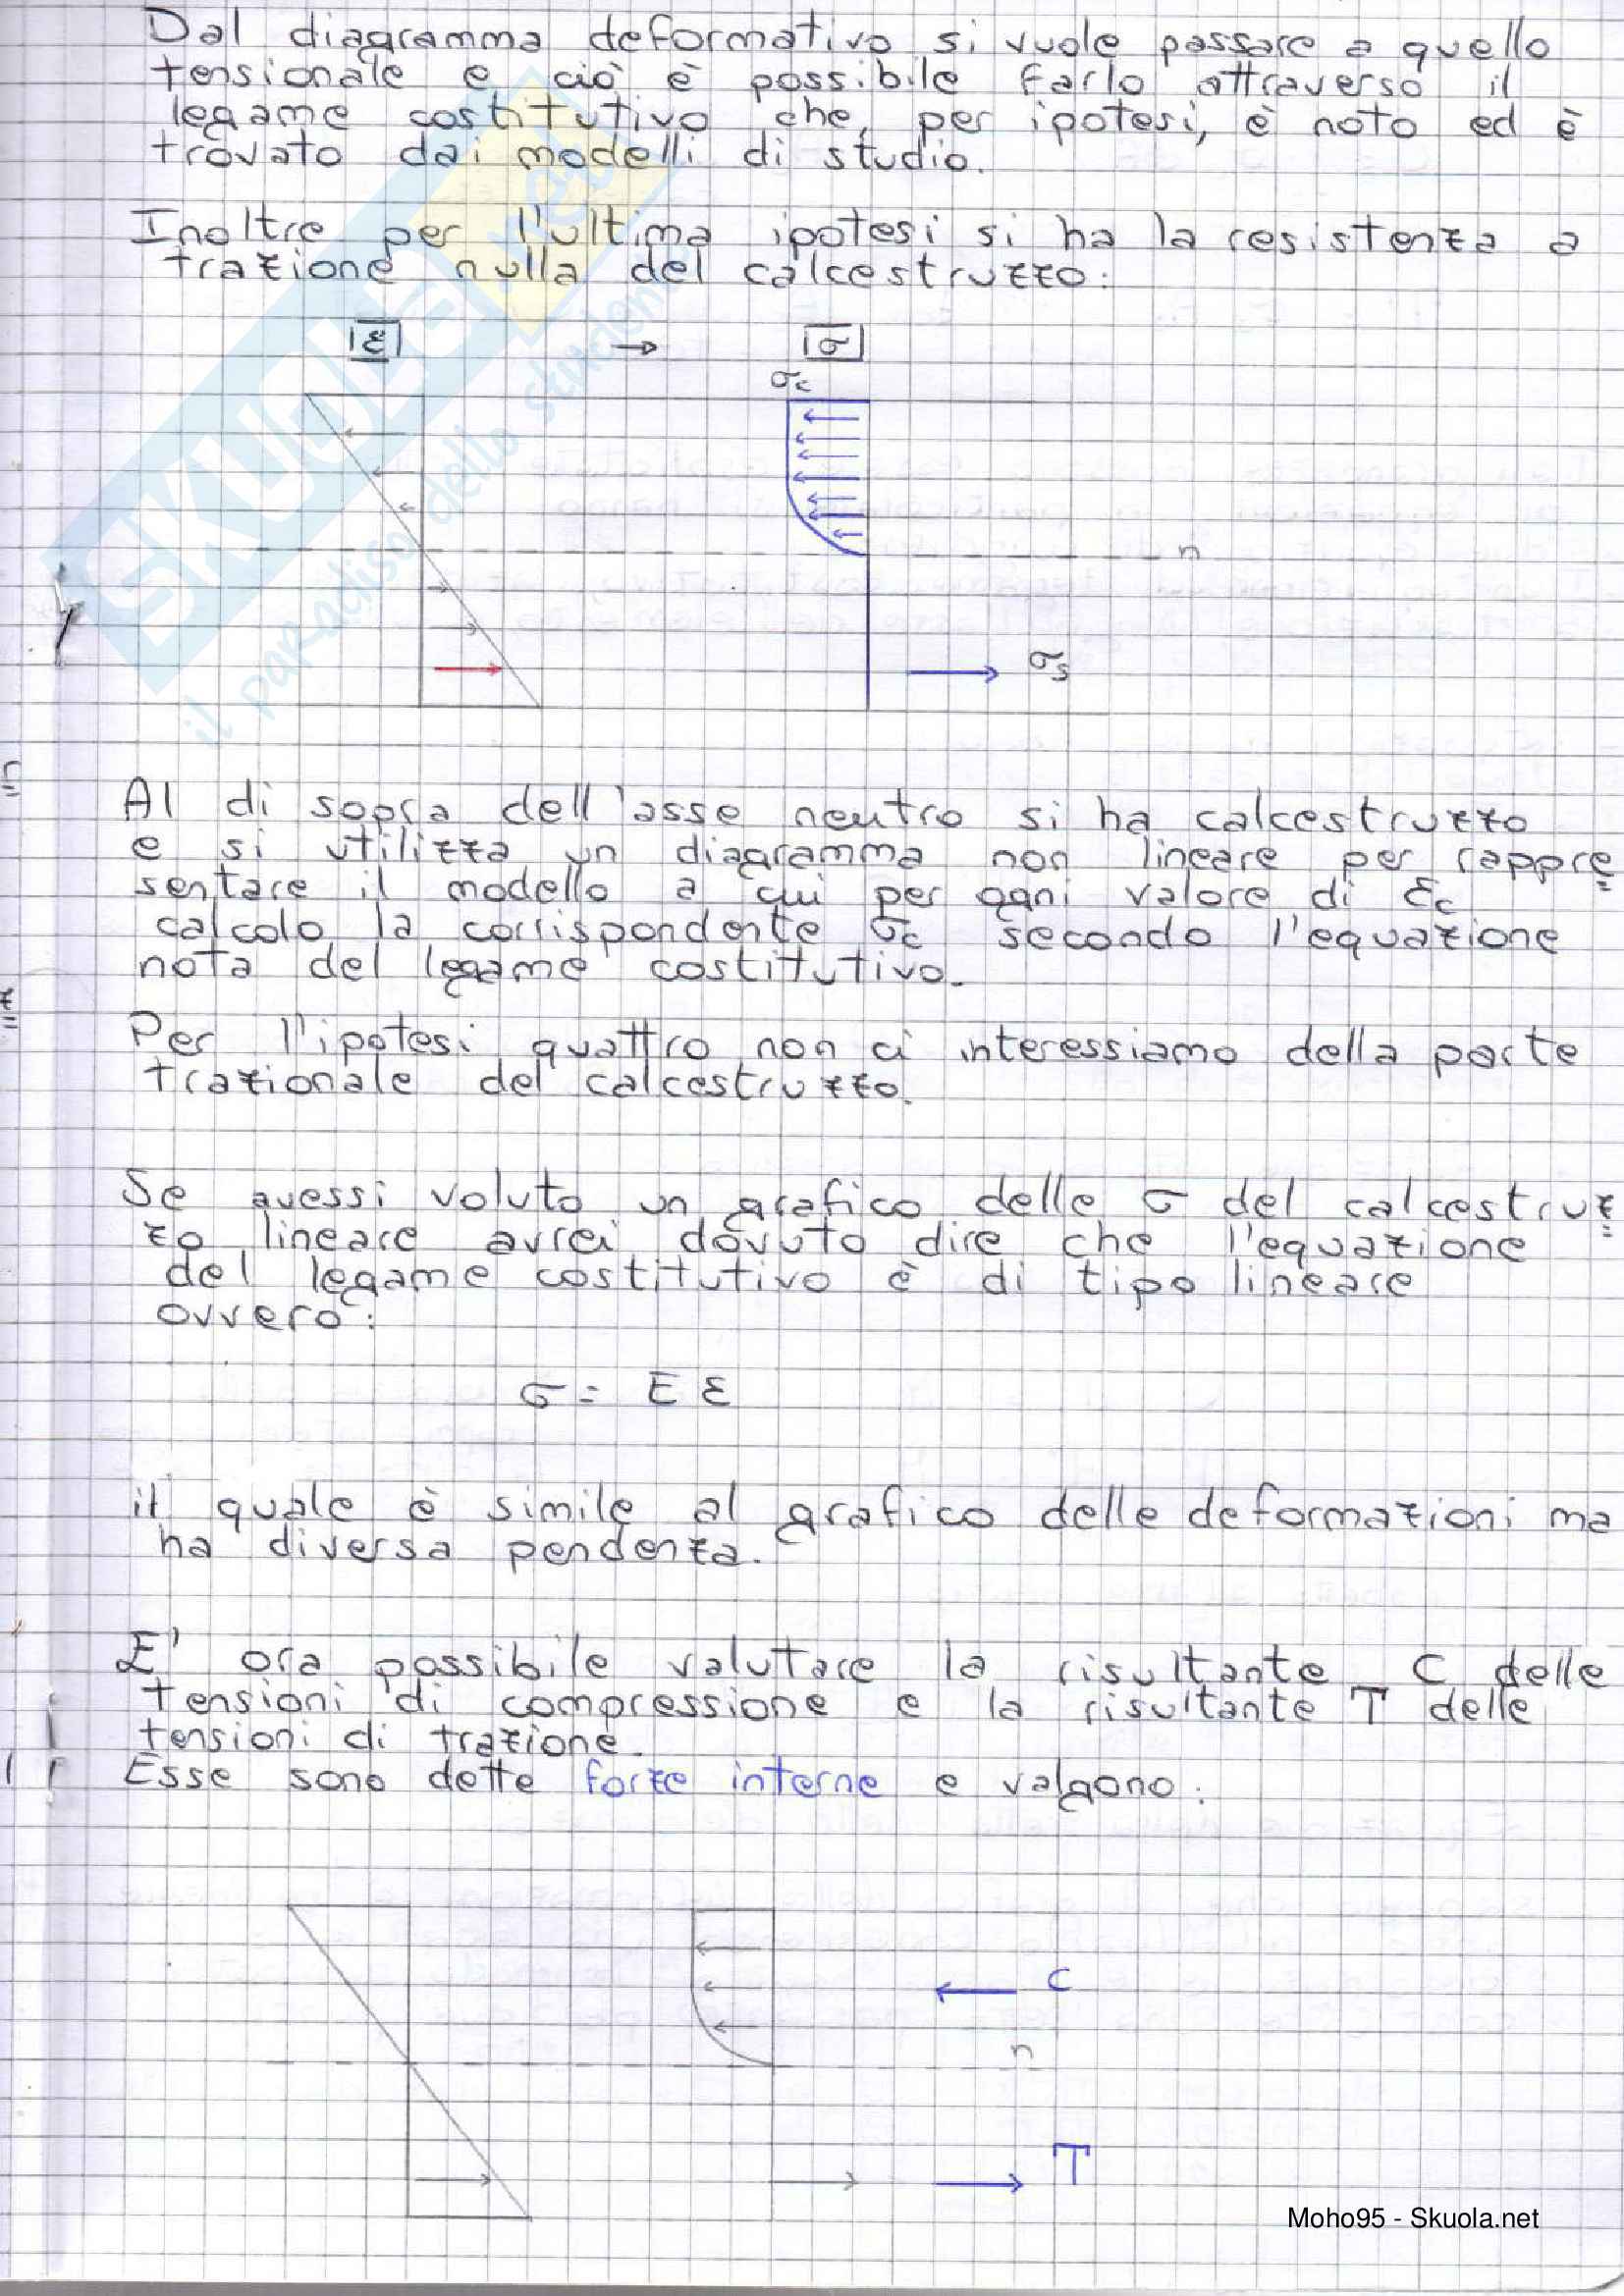 Dal diagramma deformativo si vuole passare a quello
tensionale e ciò è possibile farlo attraverso il
legame costitutivo che, per ipotesi, è noto ed è
trovato dai modelli di studio.
Inoltre per l'ultima ipotesi si ha la resistenza a
trazione nulla del calcestruzzo:
ε → σ
σc
n
σs
Al di sopra dell'asse neutro si ha calcestruzzo
e si utilizza un diagramma non lineare per rappre
sentare il modello a cui per ogni valore di εc
calcolo la corrispondente σc secondo l'equazione
nota del legame costitutivo.
Per l'ipotesi quattro non ci interessiamo della parte
trazionale del calcestruzzo.
Se avessi voluto un grafico delle σ del calcestruz
zo lineare avrei dovuto dire che l'equazione
del legame costitutivo è di tipo lineare
ovvero:
σ = E ε
il quale è simile al grafico delle deformazioni ma
ha diversa pendenza.
E' ora possibile valutare la risultante C delle
tensioni di compressione e la risultante T delle
tensioni di trazione.
Esse sono dette forze interne e valgono:
C
n
T
Moho95 - Skuola.net
SKUOLA.net
il paradiso dello studente